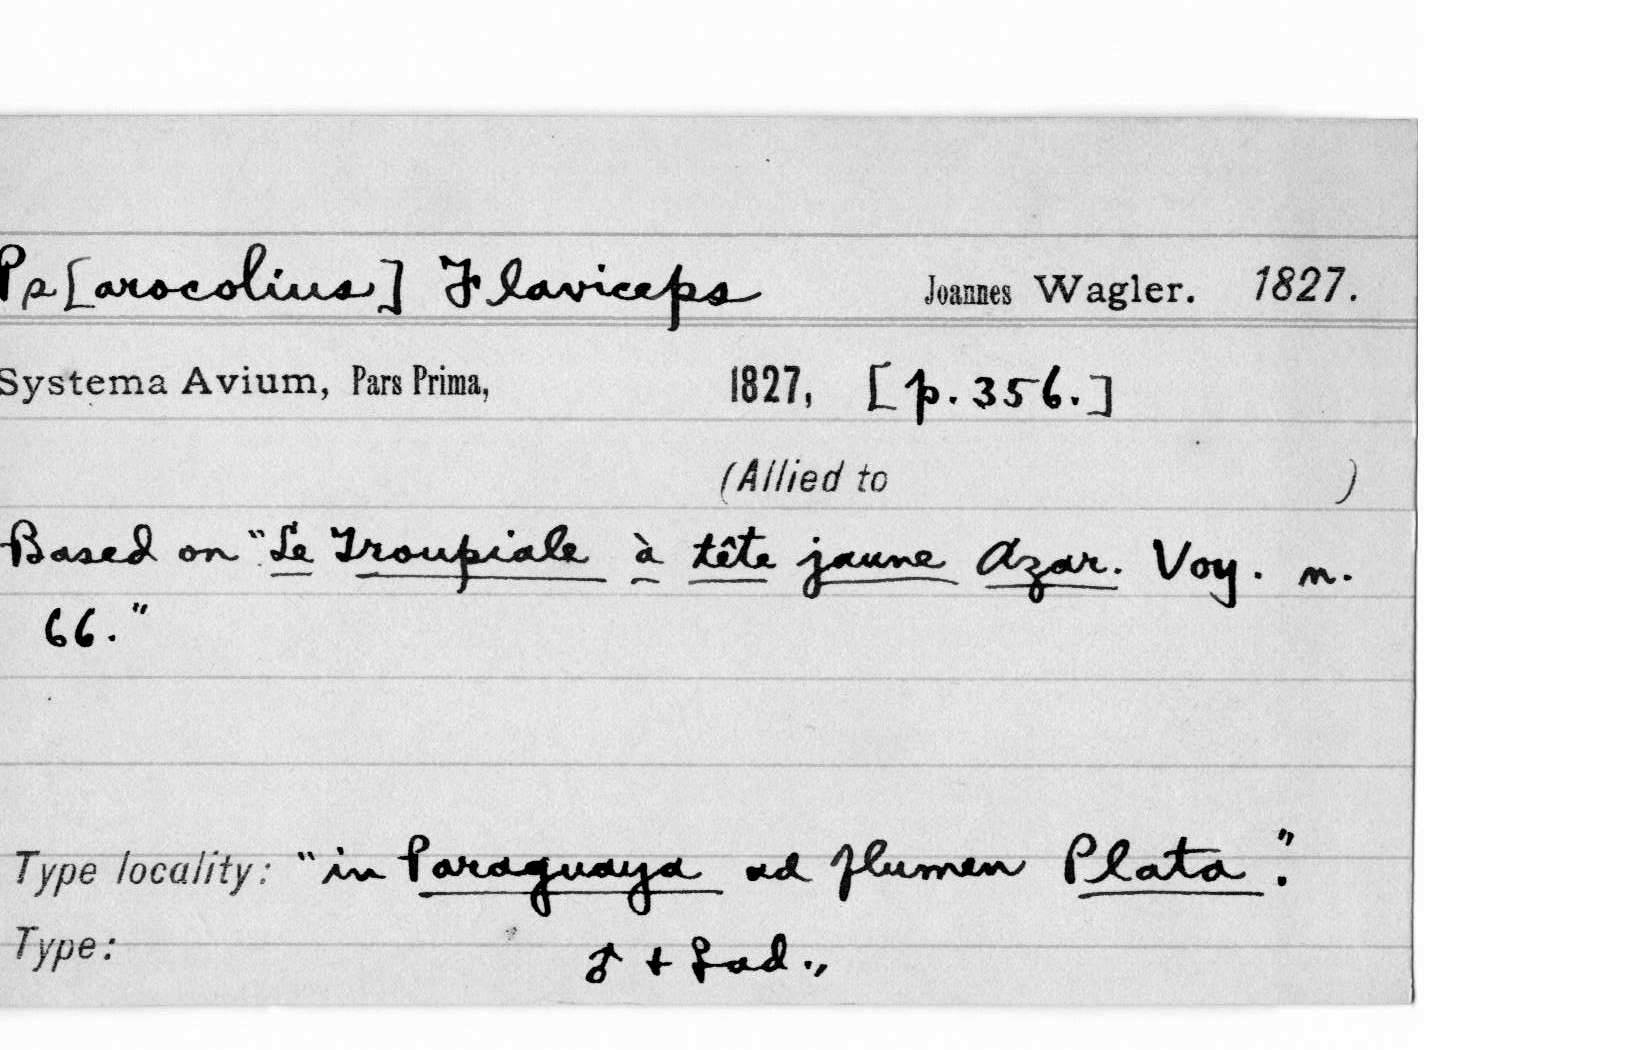 Ps[arocolius] Flaviceps Joannes Wagler. 1827.
Systema Avium, Pars Prima, 1827, [p. 356.]
(Allied to )
Based on "Le Troupiale à tête jaune Azar. Voy. n.
66."
Type locality: "in Paraguaya ad flumen Plata."
Type: ♂ + ♀ ad.,